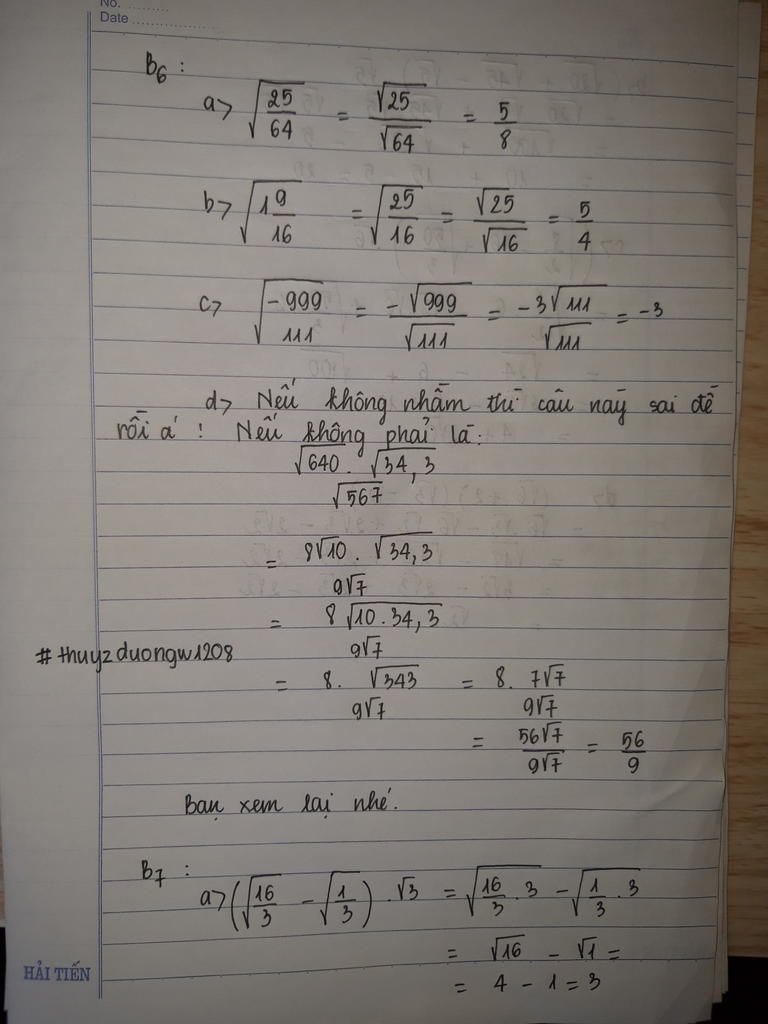 No. ..........
Date ..................
B6 :
a> √(25/64) = √25/√64 = 5/8
b> √(1 9/16) = √(25/16) = √25/√16 = 5/4
c> √(-999/111) = -√999/√111 = -3√111/√111 = -3
d> Nếu không nhầm thì câu này sai đề
rồi á ! Nếu không phải là:
√640 . √34,3 / √567
= 8√10 . √34,3 / 9√7
= 8√(10.34,3) / 9√7
#thuyzduongw1208
= 8. √343 / 9√7 = 8. 7√7 / 9√7
= 56√7/9√7 = 56/9
Bạn xem lại nhé.
B7 :
a> (√(16/3) - √(1/3)) . √3 = √(16/3 . 3) - √(1/3 . 3)
= √16 - √1 =
= 4 - 1 = 3
HẢI TIẾN